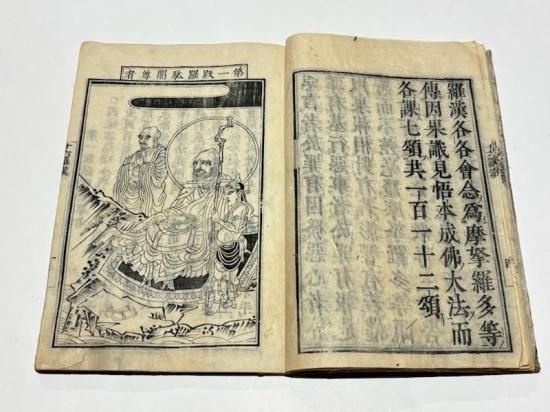 羅漢各各會念爲摩拏羅多等
傳因果識見悟本成佛大法而
各課七頌共一百一十二頌
第一跋羅駄闍尊者